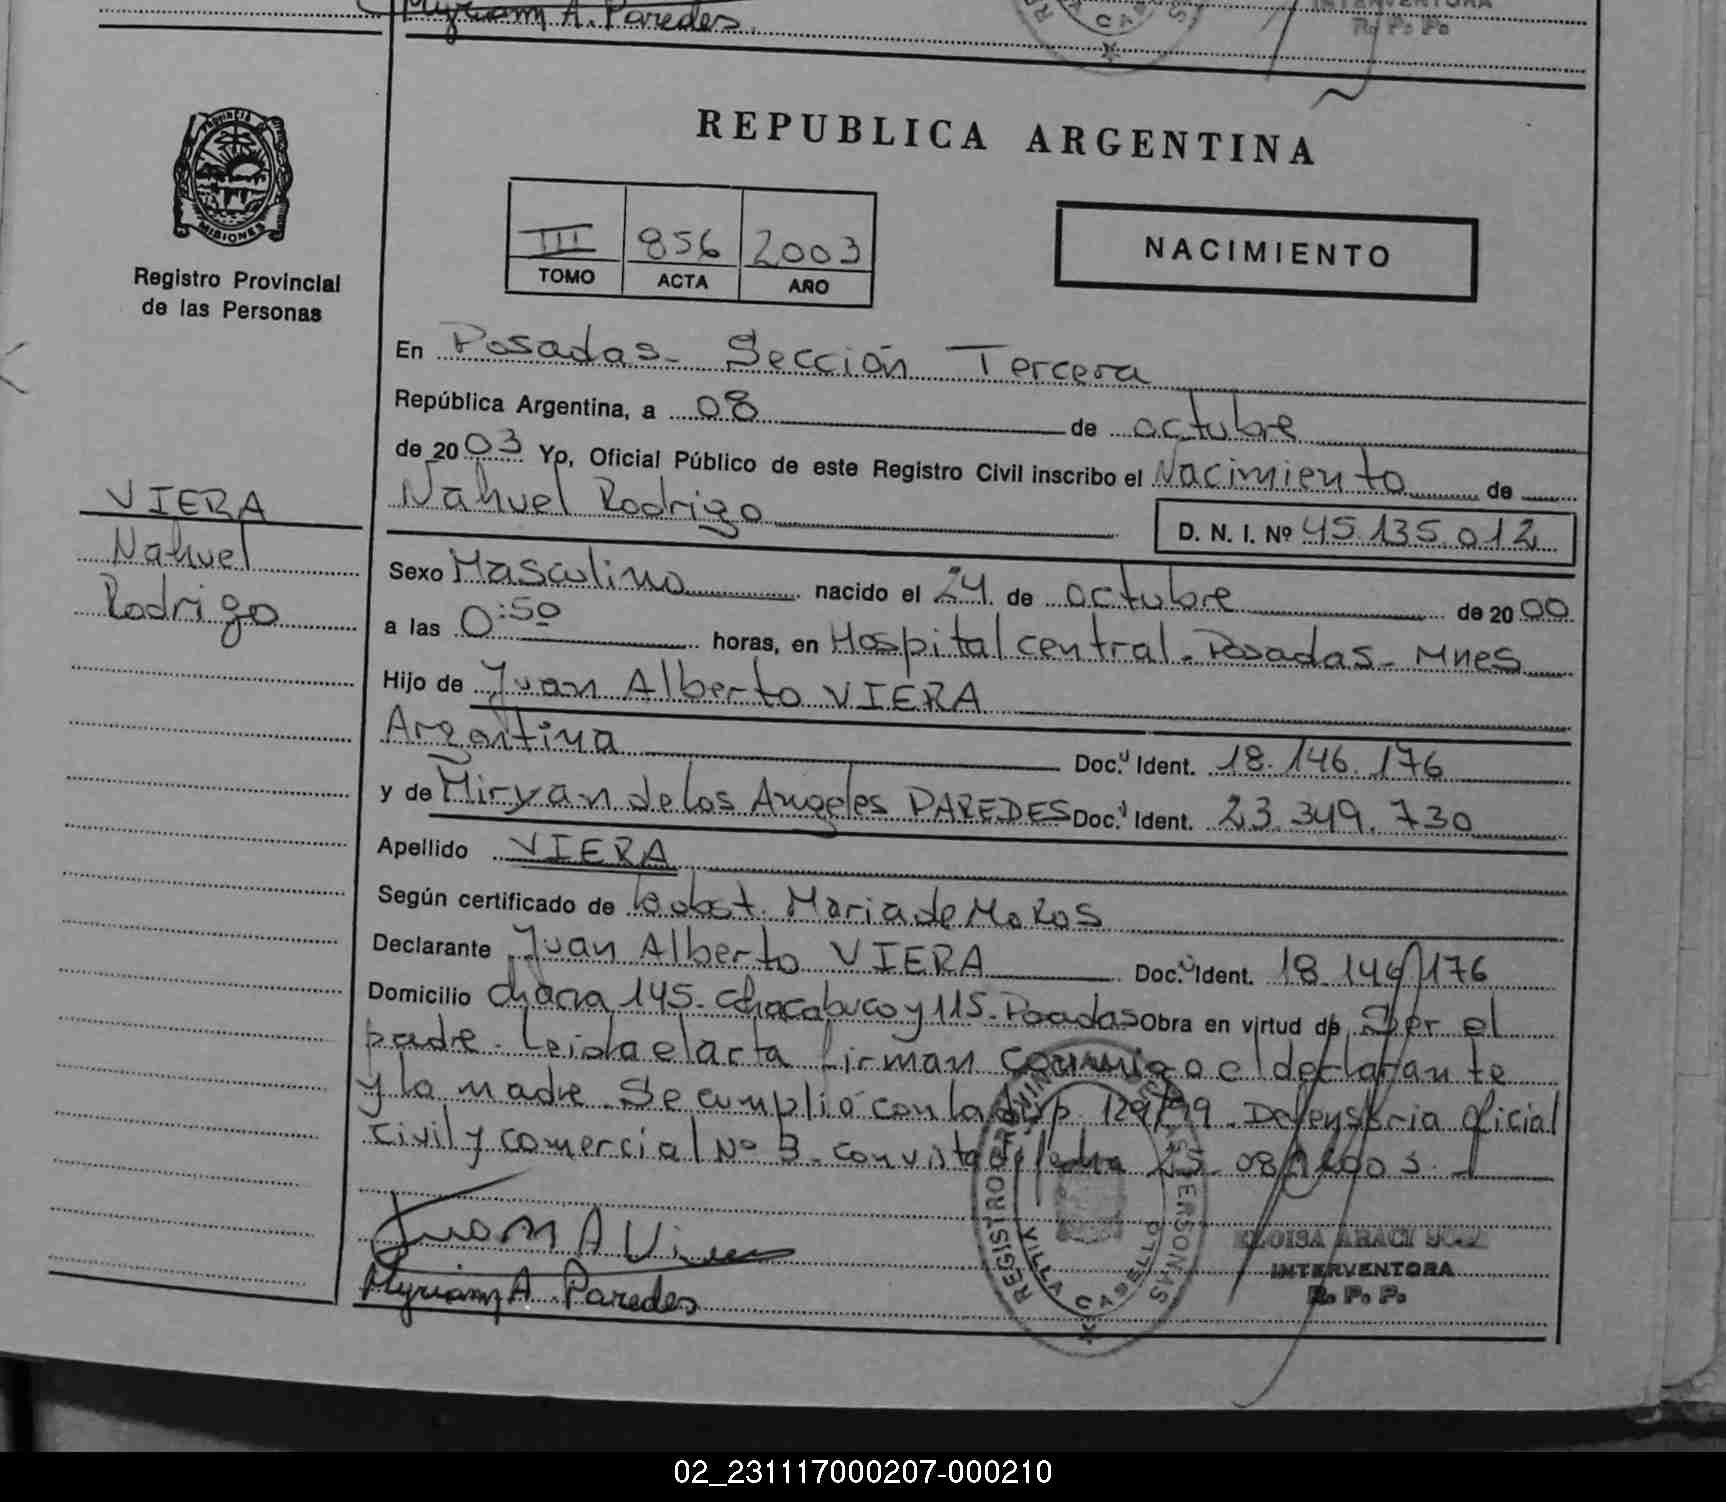 Myriam A. Paredes.
INTERVENTORA
R. P. P.
PROVINCIA DE
MISIONES
Registro Provincial
de las Personas
REPUBLICA ARGENTINA
III 856 2003
TOMO ACTA AÑO
NACIMIENTO
En Posadas - Sección Tercera
República Argentina, a 08 de octubre
de 2003 Yo, Oficial Público de este Registro Civil inscribo el Nacimiento de
Nahuel Rodrigo D. N. I. Nº 45.135.012
VIERA
Nahuel
Rodrigo
Sexo Masculino nacido el 24 de octubre de 2000
a las 0:50 horas, en Hospital central - Posadas - Mnes
Hijo de Juan Alberto VIERA
Argentina Doc. Ident. 18.146.176
y de Miryan de los Angeles PAREDES Doc. Ident. 23.349.730
Apellido VIERA
Según certificado de la obst. Maria de
Declarante Juan Alberto VIERA Doc. Ident. 18.146.176
Domicilio chacra 145 - chacabuco y 115 - Posadas Obra en virtud de Ser el
padre. Leida el acta firman conmigo el declarante
y la madre. Se cumplió con la disp. 129/99. Defensoria oficial
civil y comercial Nº 3. con vista de fecha 25.08.2003.
Juan A Viera
Myriam A. Paredes
REGISTRO PROVINCIAL DE LAS PERSONAS
VILLA CABELLO
ELOISA ARACI
INTERVENTORA
R. P. P.
02_231117000207-000210